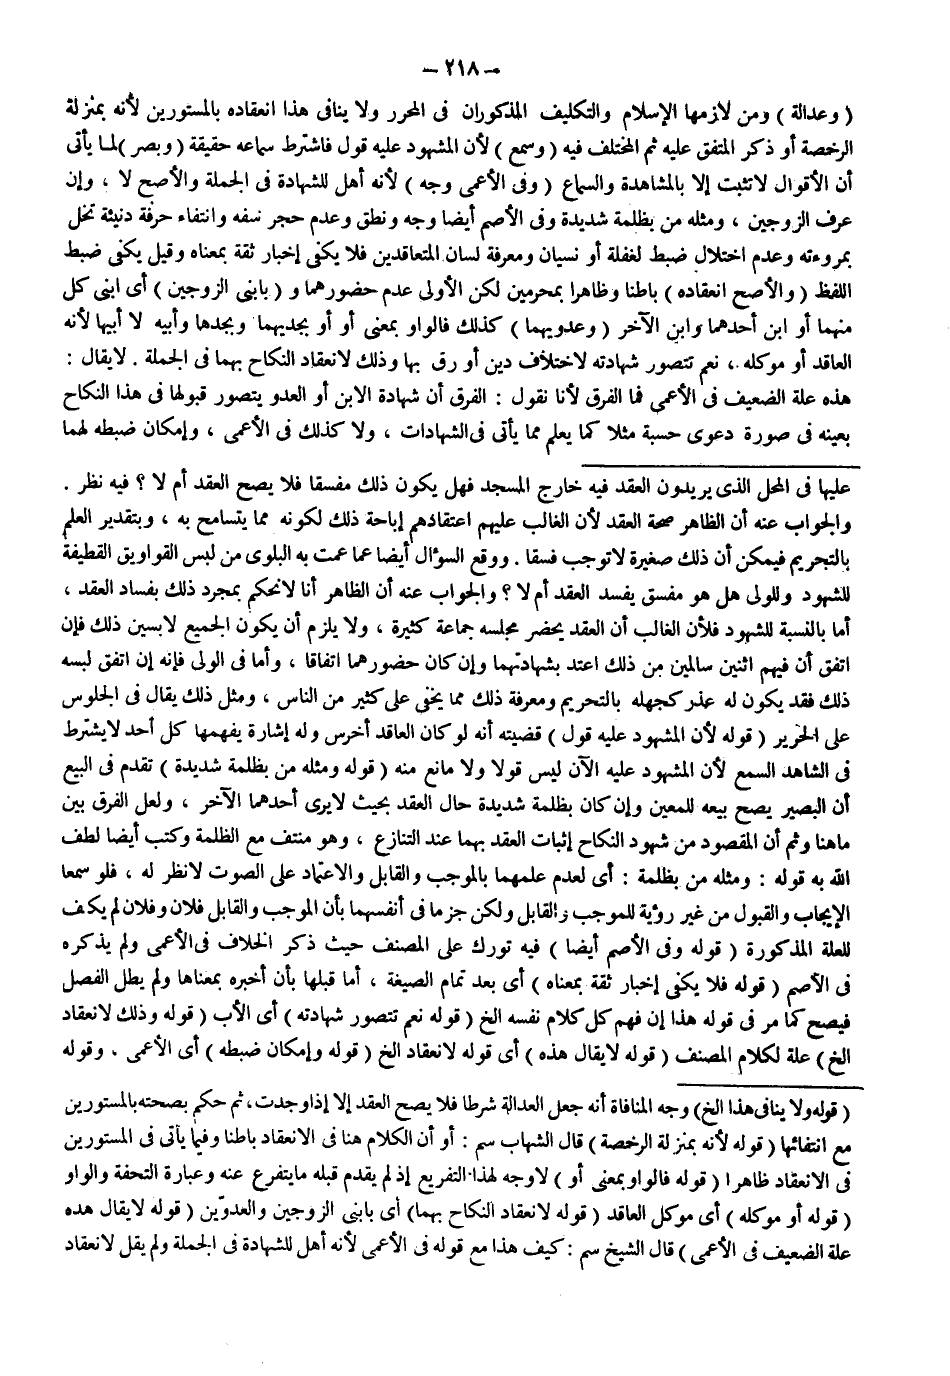 — ٢١٨ —
( وعدالة ) ومن لازمها الإسلام والتكليف المذكوران فى المحرر ولا ينافى هذا انعقاده بالمستورين لأنه بمنزلة
الرخصة أو ذكر المتفق عليه ثم المختلف فيه ( وسمع ) لأن المشهود عليه قول فاشترط سماعه حقيقة ( وبصر ) لما يأتى
أن الأقوال لاتثبت إلا بالمشاهدة والسماع ( وفى الأعمى وجه ) لأنه أهل للشهادة فى الجملة والأصح لا ، وإن
عرف الزوجين ، ومثله من بظلمة شديدة وفى الأصم أيضا وجه ونطق وعدم حجر سفه وانتفاء حرفة دنيئة تخل
بمروءته وعدم اختلال ضبط لغفلة أو نسيان ومعرفة لسان المتعاقدين فلا يكفى إخبار ثقة بمعناه وقيل يكفى ضبط
اللفظ ( والأصح انعقاده ) باطنا وظاهرا بمحرمين لكن الأولى عدم حضورهما و ( بابنى الزوجين ) أى ابنى كل
منهما أو ابن أحدهما وابن الآخر ( وعدويهما ) كذلك فالواو بمعنى أو أو بجديهما وبجدها وأبيه لا أبيها لأنه
العاقد أو موكله ، نعم تتصور شهادته لاختلاف دين أو رق بها وذلك لانعقاد النكاح بهما فى الجملة . لايقال :
هذه علة الضعيف فى الأعمى فما الفرق لأنا نقول : الفرق أن شهادة الابن أو العدو يتصور قبولها فى هذا النكاح
بعينه فى صورة دعوى حسبة مثلا كما يعلم مما يأتى فى الشهادات ، ولا كذلك فى الأعمى ، وإمكان ضبطه لهما
عليها فى المحل الذى يريدون العقد فيه خارج المسجد فهل يكون ذلك مفسقا فلا يصح العقد أم لا ؟ فيه نظر .
والجواب عنه أن الظاهر صحة العقد لأن الغالب عليهم اعتقادهم إباحة ذلك لكونه مما يتسامح به ، وبتقدير العلم
بالتحريم فيمكن أن ذلك صغيرة لاتوجب فسقا . ووقع السؤال أيضا عما عمت به البلوى من لبس القواويق القطيفة
للشهود وللولى هل هو مفسق يفسد العقد أم لا ؟ والجواب عنه أن الظاهر أنا لانحكم بمجرد ذلك بفساد العقد ،
أما بالنسبة للشهود فلأن الغالب أن العقد يحضر مجلسه جماعة كثيرة ، ولا يلزم أن يكون الجميع لابسين ذلك فإن
اتفق أن فيهم اثنين سالمين من ذلك اعتد بشهادتهما وإن كان حضورهما اتفاقا ، وأما فى الولى فإنه إن اتفق لبسه
ذلك فقد يكون له عذر كجهله بالتحريم ومعرفة ذلك مما يخفى على كثير من الناس ، ومثل ذلك يقال فى الجلوس
على الحرير ( قوله لأن المشهود عليه قول ) قضيته أنه لو كان العاقد أخرس وله إشارة يفهمها كل أحد لايشترط
فى الشاهد السمع لأن المشهود عليه الآن ليس قولا ولا مانع منه ( قوله ومثله من بظلمة شديدة ) تقدم فى البيع
أن البصير يصح بيعه للمعين وإن كان بظلمة شديدة حال العقد بحيث لايرى أحدهما الآخر ، ولعل الفرق بين
ماهنا وثم أن المقصود من شهود النكاح إثبات العقد بهما عند التنازع ، وهو منتف مع الظلمة وكتب أيضا لطف
الله به قوله : ومثله من بظلمة : أى لعدم علمهما بالموجب والقابل والاعتماد على الصوت لانظر له ، فلو سمعا
الإيجاب والقبول من غير رؤية للموجب والقابل ولكن جزما فى أنفسهما بأن الموجب والقابل فلان وفلان لم يكف
للعلة المذكورة ( قوله وفى الأصم أيضا ) فيه تورك على المصنف حيث ذكر الخلاف فى الأعمى ولم يذكره
فى الأصم ( قوله فلا يكفى إخبار ثقة بمعناه ) أى بعد تمام الصيغة ، أما قبلها بأن أخبره بمعناها ولم يطل الفصل
فيصح كما مر فى قوله هذا إن فهم كل كلام نفسه الخ ( قوله نعم تتصور شهادته ) أى الأب ( قوله وذلك لانعقاد
الخ ) علة لكلام المصنف ( قوله لايقال هذه ) أى قوله لانعقاد الخ ( قوله وإمكان ضبطه ) أى الأعمى . وقوله
( قوله ولا ينافى هذا الخ ) وجه المنافاة أنه جعل العدالة شرطا فلا يصح العقد إلا إذا وجدت ، ثم حكم بصحته بالمستورين
مع انتفائها ( قوله لأنه بمنزلة الرخصة ) قال الشهاب سم : أو أن الكلام هنا فى الانعقاد باطنا وفيما يأتى فى المستورين
فى الانعقاد ظاهرا ( قوله فالواو بمعنى أو ) لاوجه لهذا التفريع إذ لم يقدم قبله مايتفرع عنه وعبارة التحفة والواو
( قوله أو موكله ) أى موكل العاقد ( قوله لانعقاد النكاح بهما ) أى بابنى الزوجين والعدوّين ( قوله لايقال هده
علة الضعيف فى الأعمى ) قال الشيخ سم : كيف هذا مع قوله فى الأعمى لأنه أهل للشهادة فى الجملة ولم يقل لانعقاد